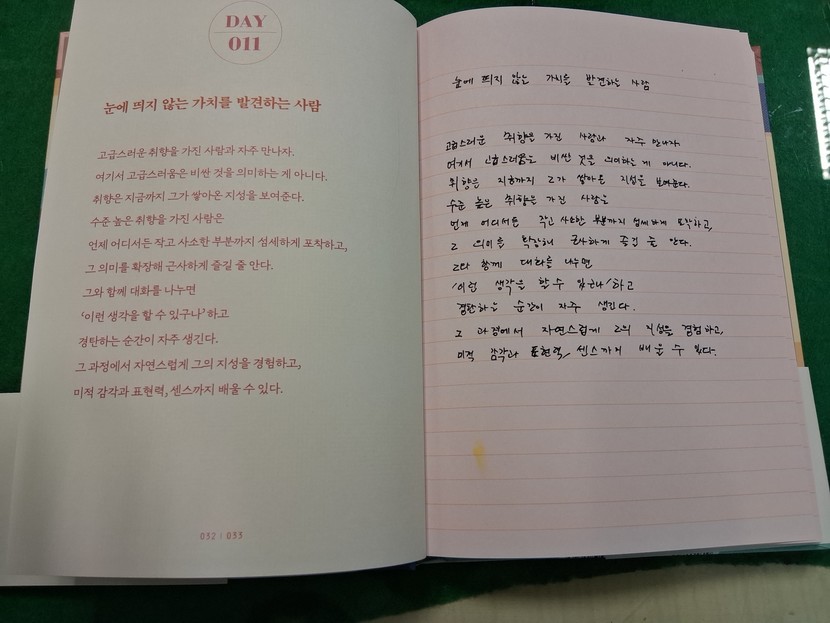 DAY
011
눈에 띄지 않는 가치를 발견하는 사람
고급스러운 취향을 가진 사람과 자주 만나자.
여기서 고급스러움은 비싼 것을 의미하는 게 아니다.
취향은 지금까지 그가 쌓아온 지성을 보여준다.
수준 높은 취향을 가진 사람은
언제 어디서든 작고 사소한 부분까지 섬세하게 포착하고,
그 의미를 확장해 근사하게 즐길 줄 안다.
그와 함께 대화를 나누면
‘이런 생각을 할 수 있구나’ 하고
경탄하는 순간이 자주 생긴다.
그 과정에서 자연스럽게 그의 지성을 경험하고,
미적 감각과 표현력, 센스까지 배울 수 있다.
032 | 033
눈에 띄지 않는 가치를 발견하는 사람
고급스러운 취향을 가진 사람과 자주 만나자.
여기서 고급스러움은 비싼 것을 의미하는 게 아니다.
취향은 지금까지 그가 쌓아온 지성을 보여준다.
수준 높은 취향을 가진 사람은
언제 어디서든 작고 사소한 부분까지 섬세하게 포착하고,
그 의미를 확장해 근사하게 즐길 줄 안다.
그와 함께 대화를 나누면
'이런 생각을 할 수 있구나' 하고
경탄하는 순간이 자주 생긴다.
그 과정에서 자연스럽게 그의 지성을 경험하고,
미적 감각과 표현력, 센스까지 배울 수 있다.